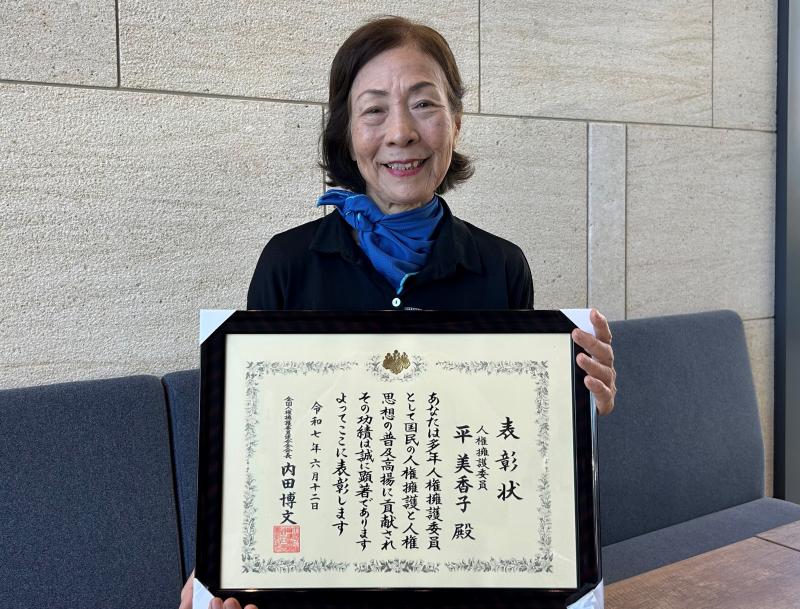 表彰状
人権擁護委員
平 美香子 殿
あなたは多年人権擁護委員
として国民の人権擁護と人権
思想の普及高揚に貢献され
その功績は誠に顕著であります
よってここに表彰します
令和七年六月十二日
全国人権擁護委員連合会会長 内田博文